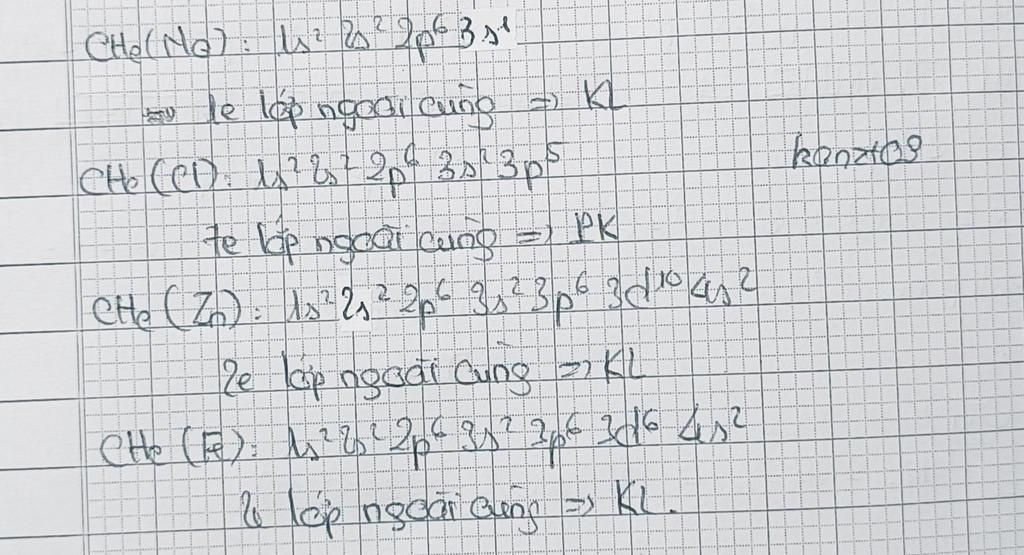 CHe(Na): 1s² 2s² 2p⁶ 3s¹
=> 1e lớp ngoài cùng => KL
CHe(Cl): 1s² 2s² 2p⁶ 3s² 3p⁵
7e lớp ngoài cùng => PK
CHe(Zn): 1s² 2s² 2p⁶ 3s² 3p⁶ 3d¹⁰ 4s²
2e lớp ngoài cùng => KL
CHe(Fe): 1s² 2s² 2p⁶ 3s² 3p⁶ 3d⁶ 4s²
2e lớp ngoài cùng => KL.